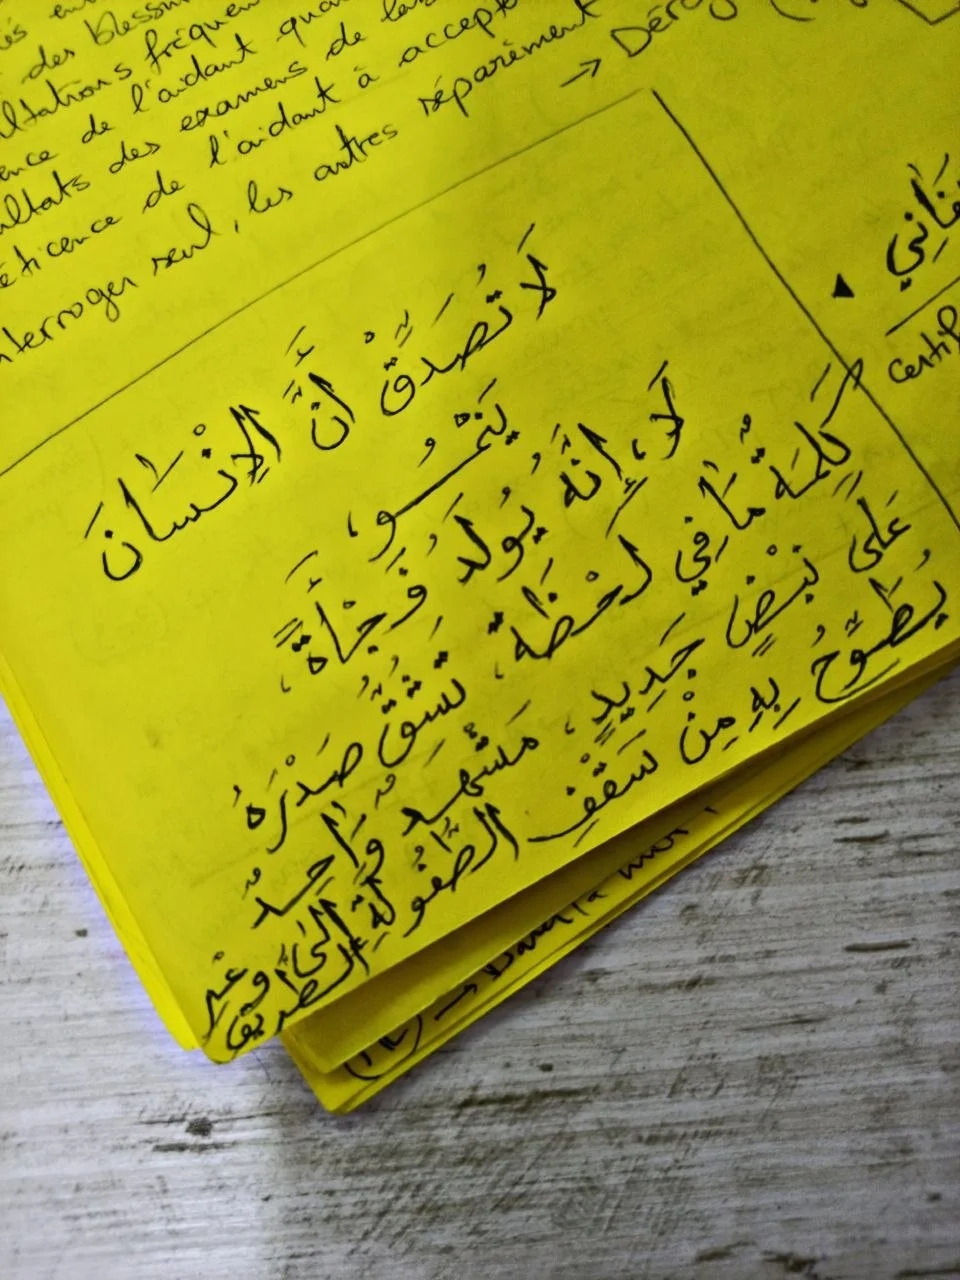 des blessu
ultations fréquen
ence de l'aidant qua
ultats des examens de la
éticence de l'aidant à accept
nterroger seul, les autres séparément → Déro
لَا تُصَدِّقْ أَنَّ الإِنْسَانَ
يَنْمُو،
لَا، إِنَّهُ يُولَدُ فَجْأَةً،
كَلِمَةٌ مَا فِي لَحْظَةٍ، تَشُقُّ صَدْرَهُ
عَلَى نَبْضٍ جَدِيدٍ، مَشْهَدٌ وَاحِدٌ وَغَيْر
يُطَوِّحُ بِهِ مِنْ سَقْفِ الطُّفُولَةِ إِلَى الطَّرِيق
Certif